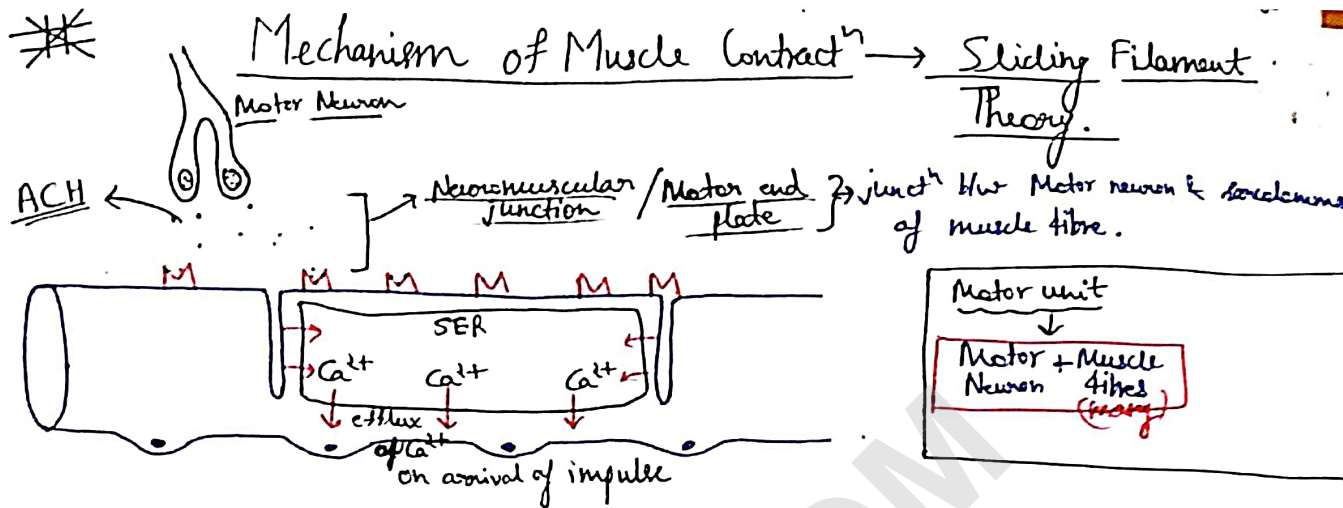 Mechanism of Muscle Contractⁿ → Sliding Filament
Theory.
Motor Neuron
ACH
Neuromuscular junction / Motor end plate → junctⁿ b/w Motor neuron & sarcolemma
of muscle fibre.
M M M M M M
SER
Ca²⁺ Ca²⁺ Ca²⁺
efflux
of Ca²⁺
on arrival of impulse
Motor unit
Motor + Muscle
Neuron fibres
(many)
OM